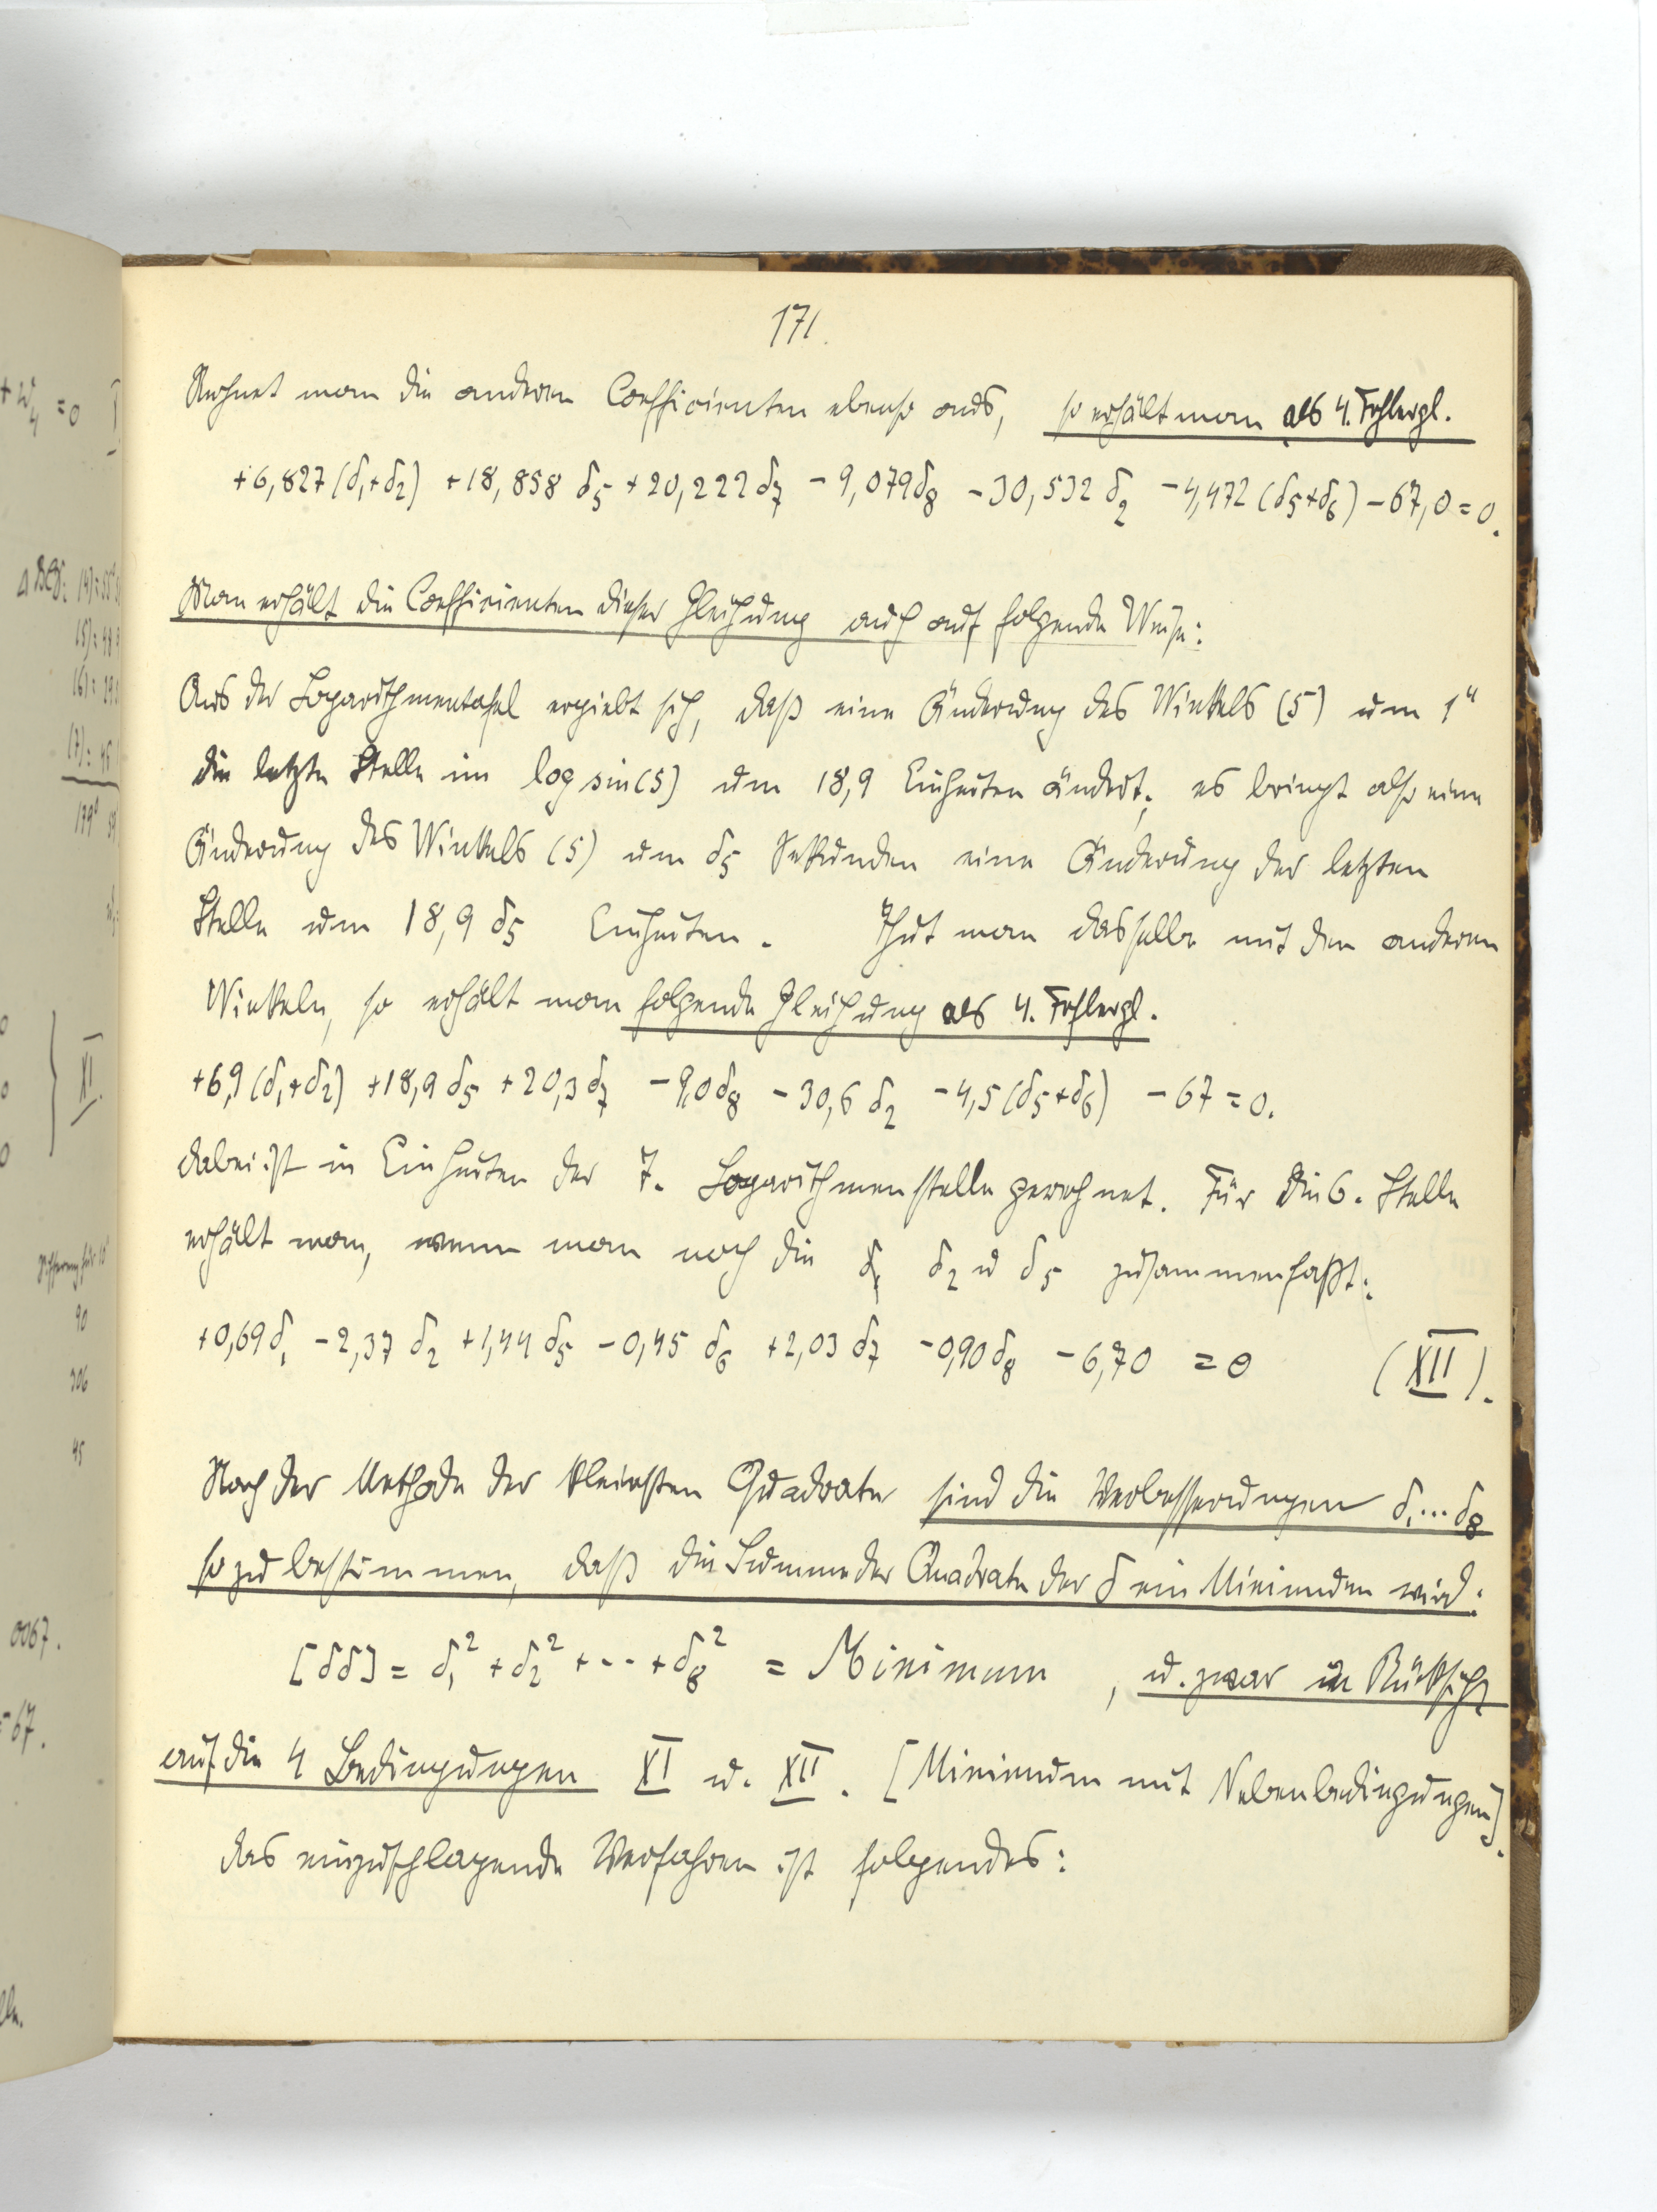 171.
Rechnet man die anderen Coefficienten ebenso aus, so erhält man als 4. Fehlergl.
+6,827(δ₁+δ₂) +18,858 δ₅ +20,222 δ₇ -9,079 δ₈ -30,532 δ₂ -4,472 (δ₅+δ₆) -67,0 = 0.
Man erhält die Coefficienten dieser Gleichung auch auf folgende Weise:
Aus der Logarithmentafel ergiebt sich, daß eine Änderung des Winkels (5) um 1"
die letzte Stelle im log sin(5) um 18,9 Einheiten ändert; es bringt also eine
Änderung des Winkels (5) um δ₅ Sekunden eine Änderung der letzten
Stelle um 18,9 δ₅ Einheiten. Thut man dasselbe mit den anderen
Winkeln, so erhält man folgende Gleichung als 4. Fehlergl.
+6,9(δ₁+δ₂) +18,9 δ₅ +20,3 δ₇ -9,0 δ₈ -30,6 δ₂ -4,5(δ₅+δ₆) -67 = 0.
dabei ist in Einheiten der 7. Logarithmenstelle gerechnet. Für die 6. Stelle
erhält man, wenn man noch die δ₁ δ₂ u δ₅ zusammenfaßt:
+0,69 δ₁ -2,37 δ₂ +1,44 δ₅ -0,45 δ₆ +2,03 δ₇ -0,90 δ₈ -6,70 = 0 (XII).
Nach der Methode der kleinsten Quadrate sind die Verbesserungen δ₁...δ₈
so zu bestimmen, daß die Summe der Quadrate der δ ein Minimum wird:
[δδ] = δ₁² + δ₂² + ... + δ₈² = Minimum, u. zwar in Rücksicht
auf die 4 Bedingungen XI u. XII. [Minimum mit Nebenbedingungen].
das einzuschlagende Verfahren ist folgendes: